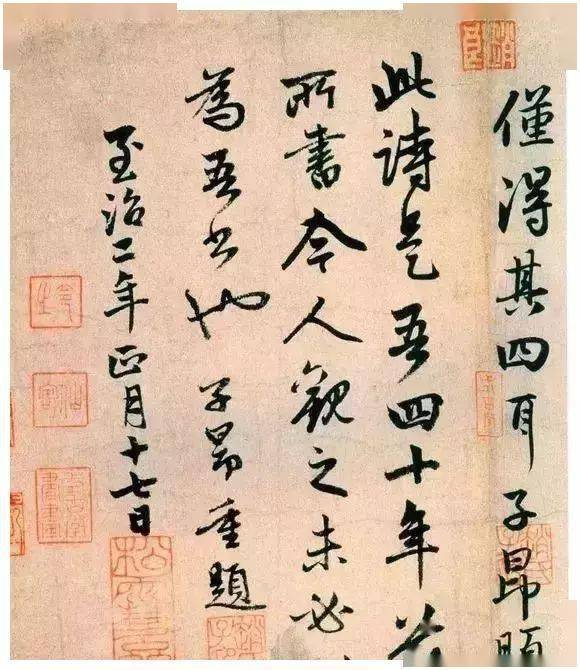 僅得其四耳子昂
此詩是吾四十年
所書今人觀之未必
為吾書也子昂重題
至治二年正月十七日